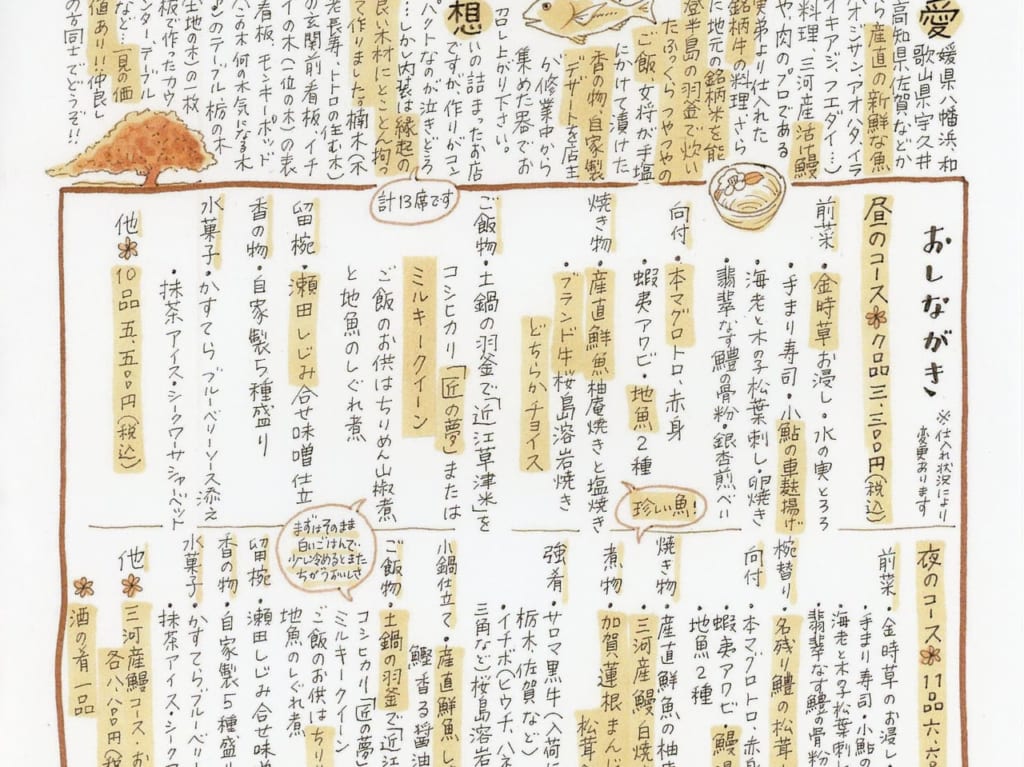 愛
媛県八幡浜、和
歌山県宇久井
高知県佐賀などか
ら産直の新鮮な魚
オシサン、アオハタ、イラ
オキアジ、フエダイ…）
料理、三河産活け鰻
や、肉のプロである
実弟より仕入れた
銘柄牛の料理、さら
に地元の銘柄米を能
登半島の羽釜で炊い
たふっくらつやつやの
ご飯、女将が手塩
にかけて漬けた
香の物、自家製
デザートを店主
が修業中から
集めた器でお
召し上がり下さい。
想
いの詰まったお店
ですが、作りがコン
パクトなのが泣きどころ
…しかし内装は縁起の
良い木材にとことん拘っ
て作りました。楠木（木
老長寿、トトロの住む木）
の玄関前看板、イチ
イの木（一位の木）の表
看板、モンキーポッド
（この木何の木気になる木
）のテーブル、栃の木
土地の木）の一枚
板で作ったカウ
ンター・テーブル
など…一見の価
値あり!!仲良し
の方同士でどうぞ!!
計13席です
おしながき
※仕入れ状況により
変更あります
昼のコース 9品 三、三〇〇円（税込）
前菜・金時草お浸し・水の実とろろ
・手まり寿司・小鮎の車麩揚げ
・海老と木の子松葉刺し・卵焼き
・翡翠なす鱧の骨粉・銀杏煎べい
向付・本マグロトロ、赤身
・蝦夷アワビ・地魚2種
焼き物・産直鮮魚柚庵焼きと塩焼き
・ブランド牛桜島溶岩焼き
どちらかチョイス
ご飯物・土鍋の羽釜で「近江草津米」を
コシヒカリ「匠の夢」または
ミルキークイーン
ご飯のお供はちりめん山椒煮
と地魚のしぐれ煮
留椀・瀬田しじみ合せ味噌仕立
香の物・自家製5種盛り
水菓子・かすてらブルーベリーソース添え
・抹茶アイス・シークワーサーシャーベット
他 10品 五、五〇〇円（税込）
珍しい魚!
まずはそのまま
白いごはんで、
少し冷めるとまた
ちがうおいしさ
夜のコース 11品 六、六
前菜・金時草のお浸し・
・手まり寿司・小鮎の
海老と木の子松葉刺
翡翠なす鱧の骨粉
椀替り・名残り鱧の松茸
向付・本マグロトロ、赤身
・蝦夷アワビ・鰻
地魚2種
焼き物・産直鮮魚の柚
・三河産鰻白焼
煮物・加賀蓮根まんじ
松茸
強肴・サロマ黒牛（入荷に
栃木、佐賀など）
・イチボ（ヒウチ、ハネ
三角など）桜島溶岩
小鍋仕立て・産直鮮魚し
鰹香る醤油
ご飯物・土鍋の羽釜で「近江
コシヒカリ「匠の夢」
ミルキークイーン
ご飯のお供はちり
地魚のしぐれ煮
留椀・瀬田しじみ合せ味
香の物・自家製5種盛り
水菓子・かすてらブルーベリー
・抹茶アイス・シーク
他 三河産鰻コース・お
各八、八〇〇円（税
酒の肴一品